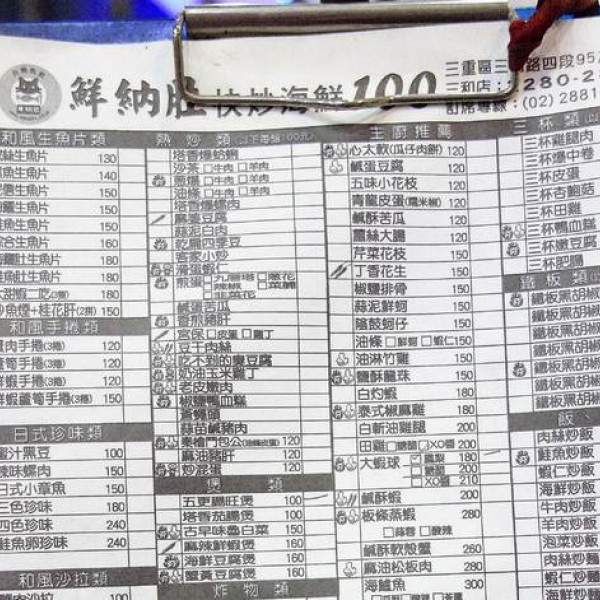 鮮納肚 快炒海鮮100
三重區三 路四段957
三和店: 280-2
訂席專線:(02)2881
和風生魚片類
絲生魚片 130
魚生魚片 140
生魚片 150
生魚片 150
生魚片 150
綜合生魚片 160
魚肚生魚片 180
魚肚生魚片 180
大甜蝦二吃(3隻) 180
魚煙+桂花肝(2拼) 150
和風手捲類
肉手捲(3捲) 120
蘆筍手捲(3捲) 120
鮮蝦手捲(3捲) 120
鮮蝦蘆筍手捲(3捲) 120
日式珍味類
蜜汁黑豆 100
辣味螺肉 150
日式小章魚 150
三色珍味 180
四色珍味 240
鮭魚卵珍味 240
和風沙拉類
熱炒類(以下每盤100元)
塔香爆蛤蜊
沙茶 □牛肉 □羊肉
蔥爆 □牛肉 □羊肉
油條 □牛肉 □羊肉
塔香爆螺肉
麻婆豆腐
蒜泥白肉
乾扁四季豆
客家小炒
滑蛋蝦仁
煎蛋 □九層塔 □蔥花
□辣椒 □菜脯
□韭菜花
鹹蛋苦瓜
香煎豬肝
宮保 □皮蛋 □雞丁
豆干肉絲
吃不到的臭豆腐
奶油玉米雞丁
老皮嫩肉
椒鹽鴨血糕
蒼蠅頭
蒜苗鹹豬肉
秦檜鬥包公 120
麻油豬肝 120
炒混蛋 120
煲類
五更腸旺煲 100
塔香茄腸煲 100
古早味魯白菜 150
麻辣鮮蝦煲 160
海鮮豆腐煲 160
蟹黃豆腐煲 160
炸物類
主廚推薦
心太軟(瓜仔肉餅) 120
鹹蛋豆腐 120
五味小花枝 120
青龍皮蛋(糯米椒) 120
鹹酥苦瓜 120
薑絲大腸 120
芹菜花枝 150
丁香花生 150
椒鹽排骨 150
蒜泥鮮蚵 150
蔭鼓蚵仔 150
油條 □鮮蚵 □蝦仁 150
油淋竹雞 150
鹽酥龍珠 150
白灼蝦 180
泰式椒麻雞 180
白斬油雞腿 200
田雞 □XO醬 200
大蝦球 □鳳梨 180
200
□XO醬 210
鹹酥蝦 200
板條蒸蝦 280
□蒜蓉 □酸辣
鹹酥軟殼蟹 260
麻油松板肉 280
海鱸魚 300
三杯類
三杯雞腿肉
三杯爆中卷
三杯皮蛋
三杯杏鮑菇
三杯田雞
三杯鴨血糕
三杯嫩豆腐
三杯肥腸
鐵板類
鐵板黑胡椒
鐵板黑胡椒
鐵板黑胡椒
鐵板黑胡椒
鐵板黑胡椒
鐵板黑胡椒
飯、
肉絲炒飯
鮭魚炒飯
蝦仁炒飯
海鮮炒飯
牛肉炒飯
羊肉炒飯
泡菜炒飯
肉絲炒麵
蝦仁炒麵
海鮮炒麵